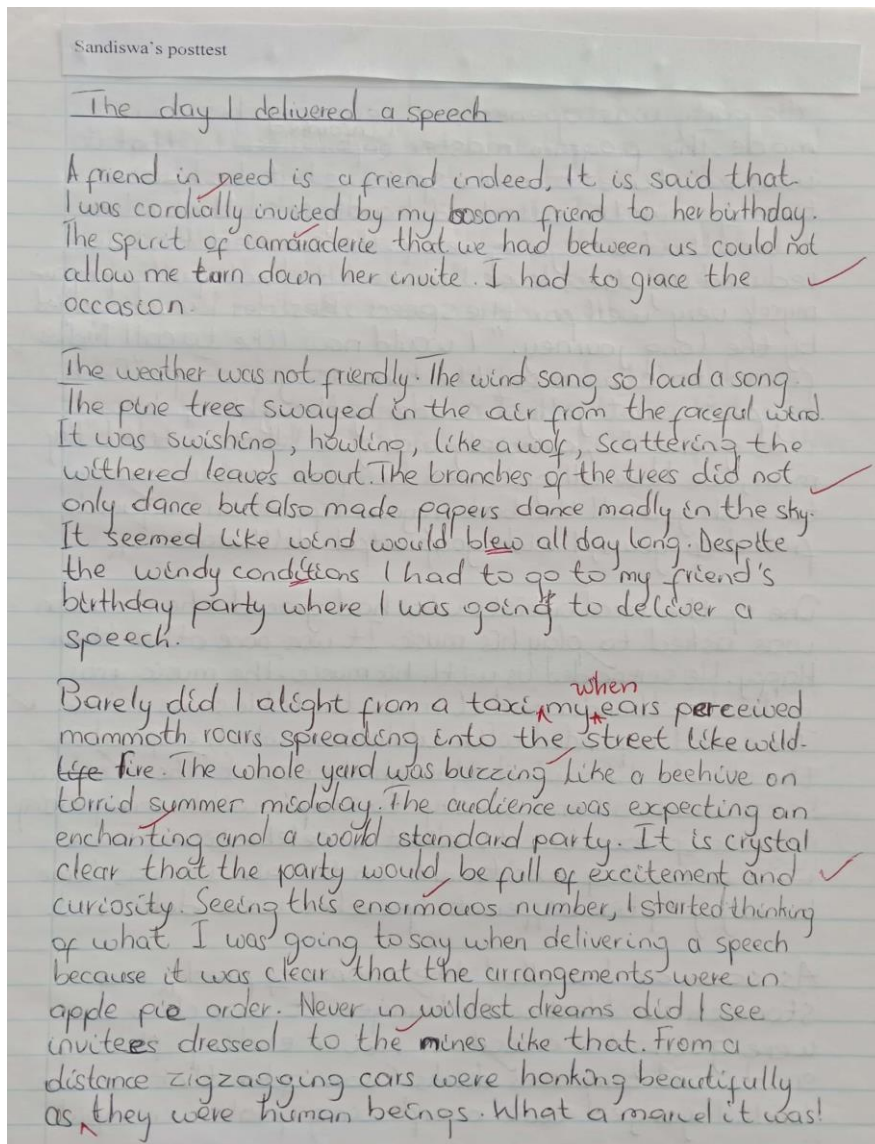 Sandiswa's posttest
The day I delivered a speech
A friend in need is a friend indeed, It is said that
I was cordially invited by my bosom friend to her birthday.
The spirit of camaraderie that we had between us could not
allow me turn down her invite. I had to grace the
occasion.
The weather was not friendly. The wind sang so loud a song.
The pine trees swayed in the air from the faceful wind.
It was swishing, howling, like a wolf, scattering the
withered leaves about. The branches of the trees did not
only dance but also made papers dance madly in the sky.
It seemed like wind would blew all day long. Despite
the windy conditions I had to go to my friend's
birthday party where I was going to deliver a
speech.
when
Barely did I alight from a taxi, my ears perceived
mammoth roars spreading into the street like wild-
life fire. The whole yard was buzzing like a beehive on
torrid summer midday. The audience was expecting an
enchanting and a world standard party. It is crystal
clear that the party would be full of excitement and
curiosity. Seeing this enormouos number, I started thinking
of what I was going to say when delivering a speech
because it was clear that the arrangements were in
apple pie order. Never in wildest dreams did I see
invitees dressed to the mines like that. From a
distance zigzagging cars were honking beautifully
as they were human beings. What a marvel it was!